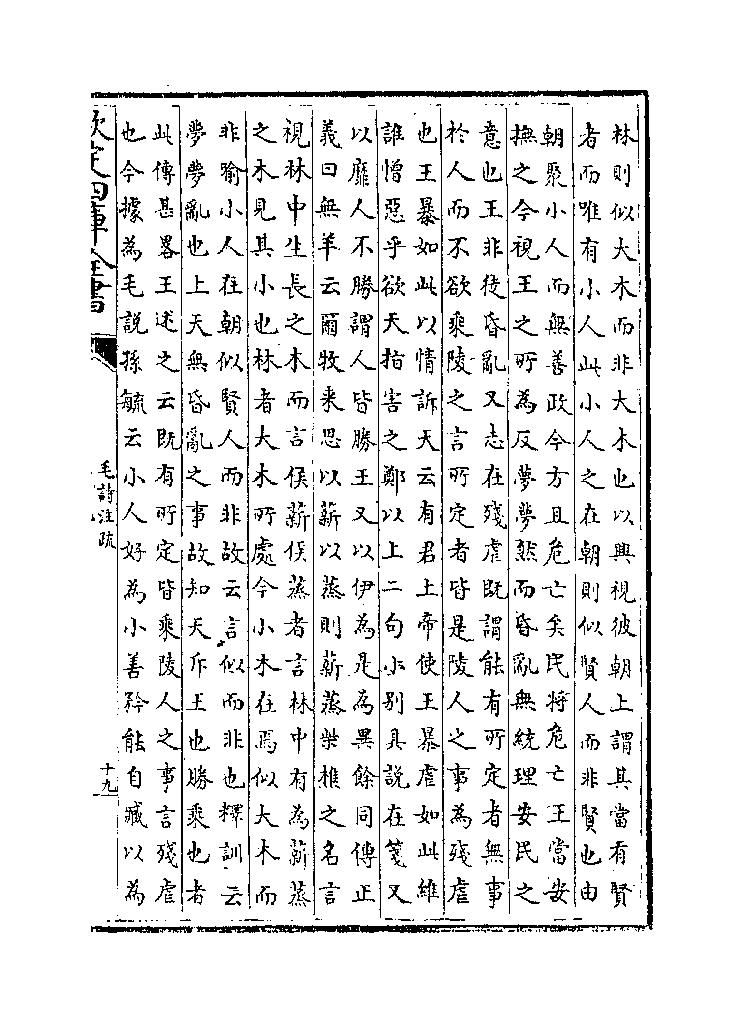 林則似大木而非大木也以興視彼朝上謂其當有賢
者而唯有小人此小人之在朝則似賢人而非賢也由
朝聚小人而無善政今方且危亡矣民將危亡王當安
撫之今視王之所為反夢夢然而昏亂無統理安民之
意也王非徒昏亂又志在殘虐既謂能有所定者無事
於人而不欲乘陵之言所定者皆是陵人之事為殘虐
也王暴如此以情訴天云有君上帝使王暴虐如此維
誰憎惡乎欲天指害之鄭以上二句小别具說在箋又
以靡人不勝謂人皆勝王又以伊為是為異餘同傳正
義曰無羊云爾牧來思以薪以蒸則薪蒸柴樵之名言
視林中生長之木而言侯薪侯蒸者言林中有為薪蒸
之木見其小也林者大木所處今小木在焉似大木而
非喻小人在朝似賢人而非故云言似而非也釋訓云
夢夢亂也上天無昏亂之事故知天斥王也勝乘也者
此傳甚畧王述之云既有所定皆乘陵人之事言殘虐
也今據為毛說孫毓云小人好為小善矜能自臧以為
欽定四庫全書
毛詩注疏
十九